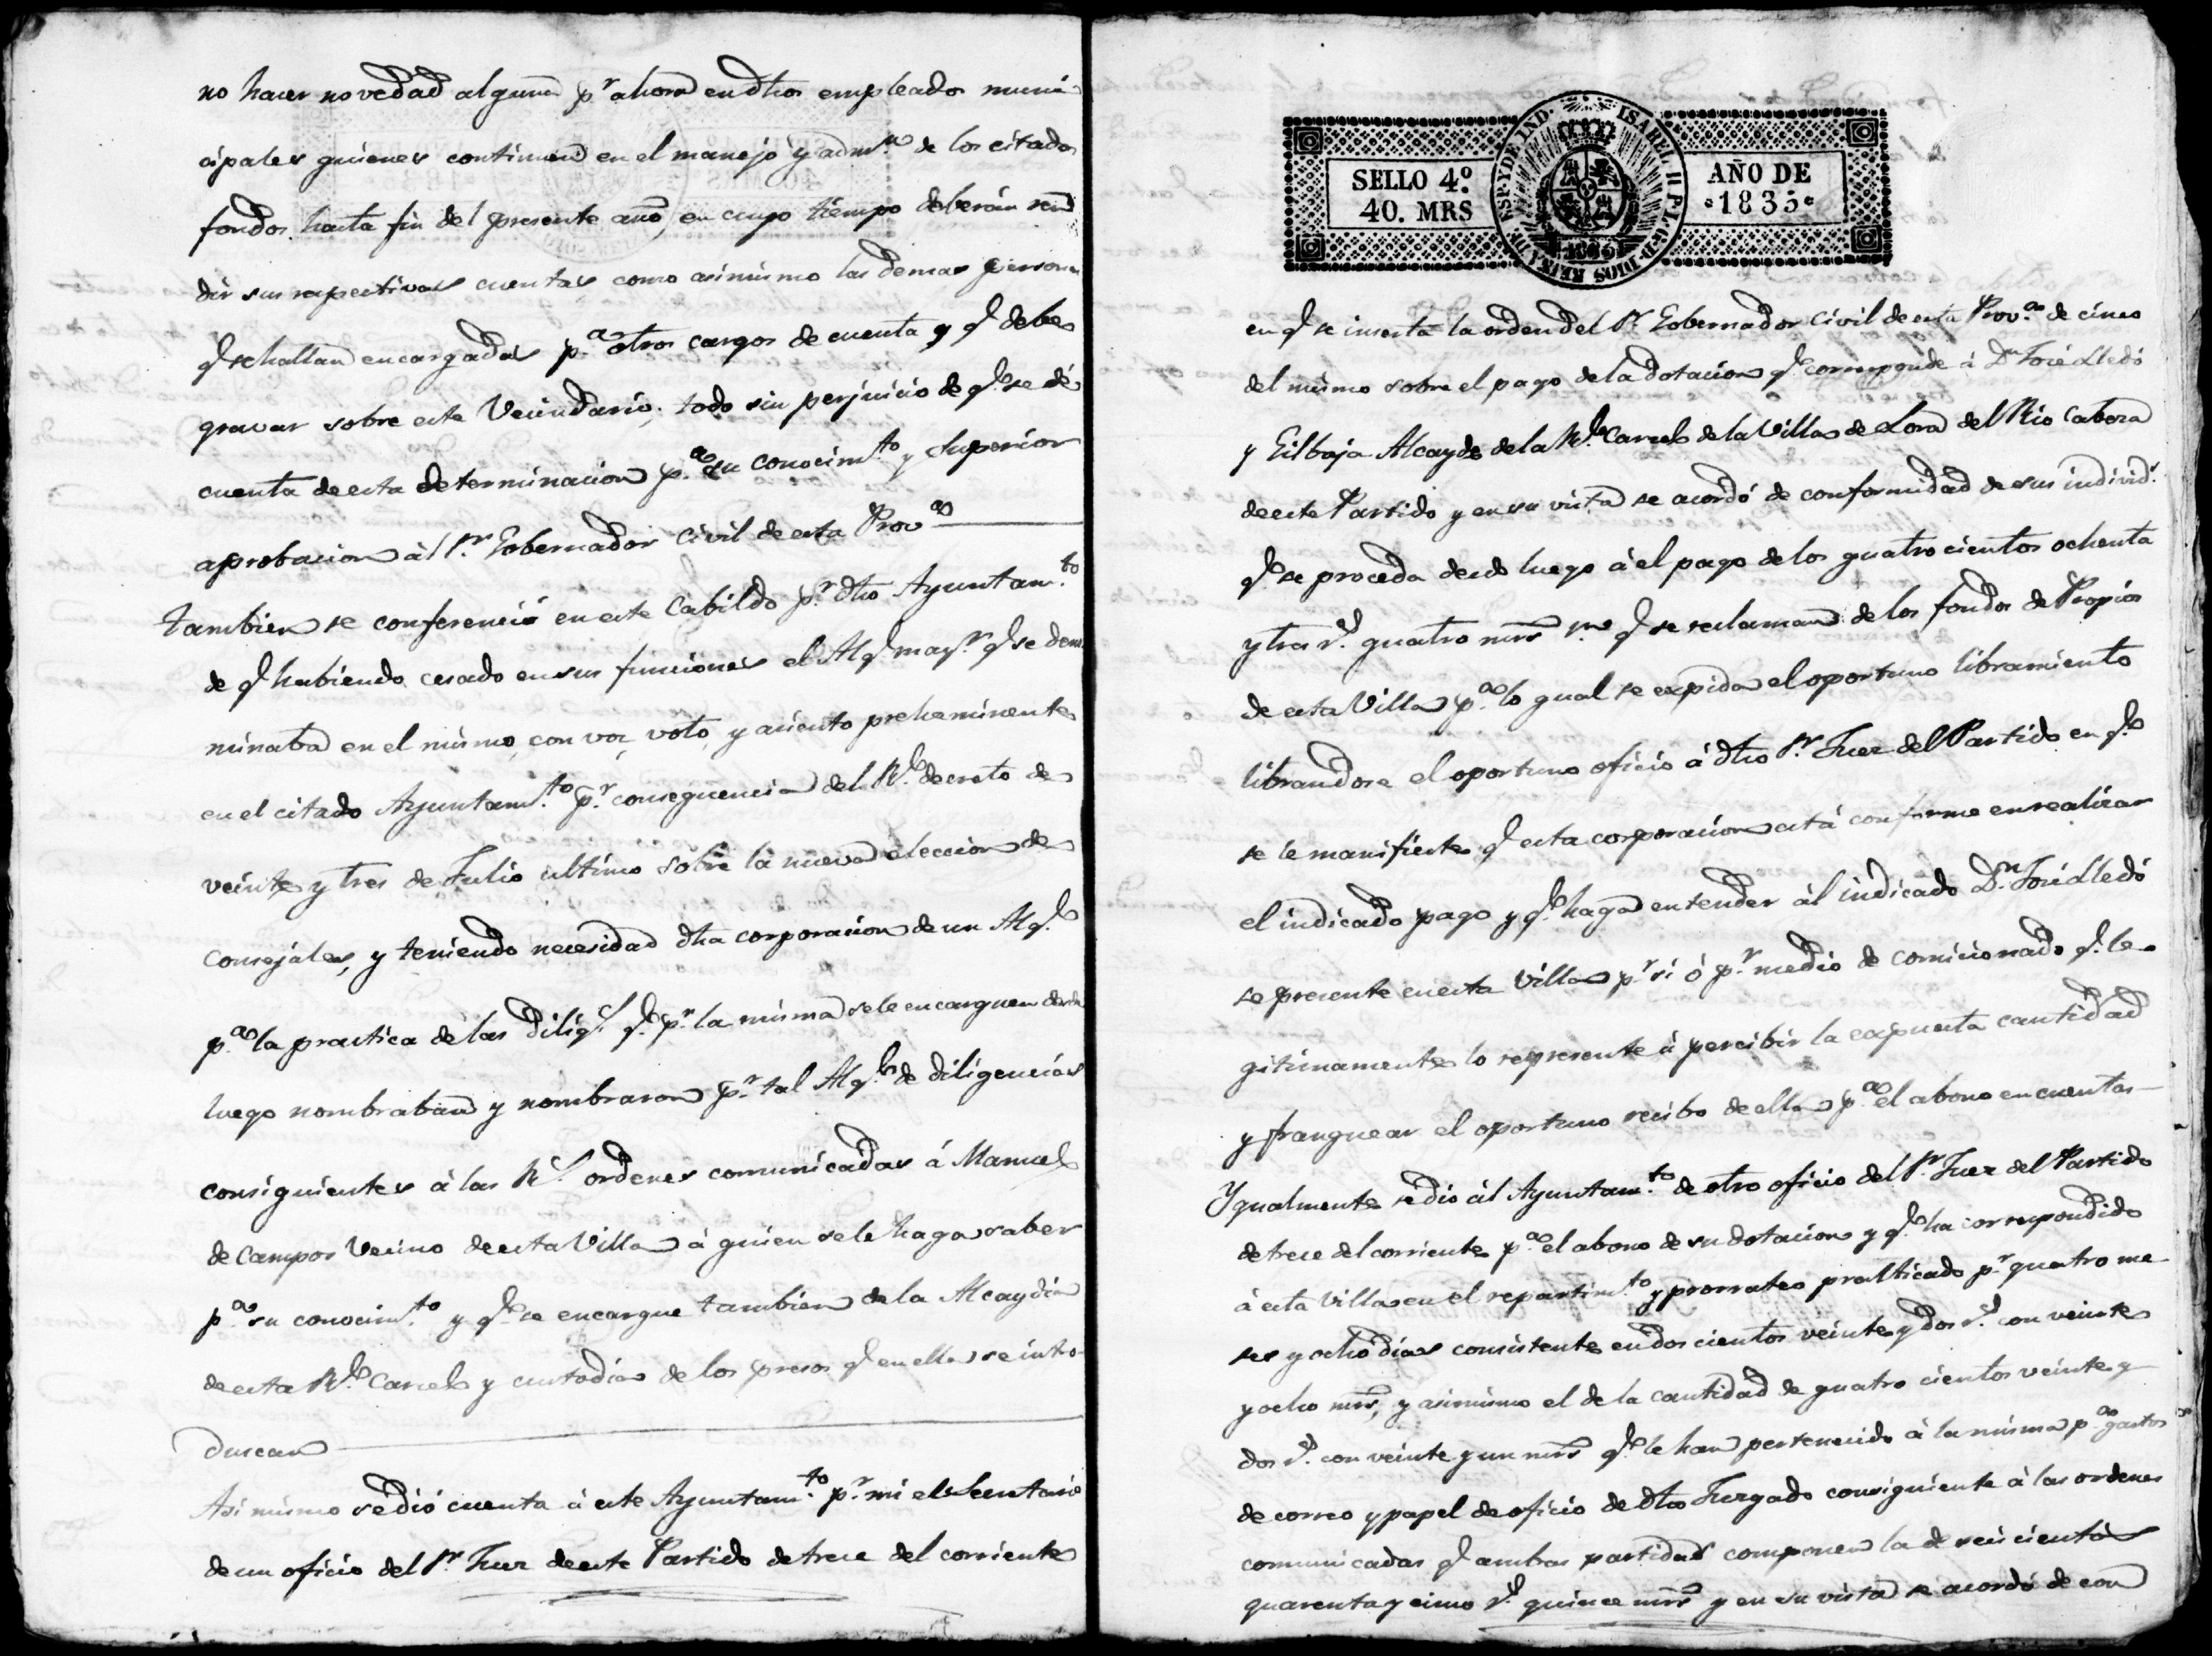 no hacer novedad alguna p.r ahora en dhos empleados muni
cipales quienes continuen en el manejo y adm.on de los citados
fondos hasta fin del presente año, en cuyo tiempo deberán ren
dir sus respectivas cuentas como asimismo las demas personas
q.e se hallan encargadas p.a otros cargos de cuenta y q.e debe
gravar sobre este Vecindario; todo sin perjuicio de q.e se dé
cuenta de esta determinacion p.a su conocim.to y Superior
aprobacion ál S.r Gobernador Civil de esta Prov.a
Tambien se conferenció en este Cabildo p.r dho Ayuntam.to
de q.e habiendo cesado en sus funciones el Alg.l may.r q.e se deno
minaba en el mismo, con voz, voto, y asiento preheminente
en el citado Ayuntam.to p.r consequencia del R.l decreto de
veinte y tres de Julio ultimo sobre la nueva eleccion de
Consejales, y teniendo necesidad dha corporacion de un Alg.l
p.a la practica de las dilig.s q.e p.r la misma se le encarguen desde
luego nombraban y nombraron p.r tal Alg.l de diligencias
consiguientes á las R.s ordenes comunicadas á Manuel
de Campos Vecino de esta Villa á quien se le haga saber
p.a su conocim.to y q.e se encargue tambien de la Alcaydia
de esta R.l Carcel y custodia de los presos q.e en ella se intro-
duscan
Asi mismo se dió cuenta á este Ayuntam.to p.r mi el Secretario
de un oficio del S.r Juez de este Partido de trece del corriente
SELLO 4.º
40. MRS
ISABEL II P.L.G.D. DIOS REINA DE ESP. Y DE IND.
AÑO DE
1835
en q.e se inserta la orden del S.r Gobernador Civil de esta Prov.a de cinco
del mismo sobre el pago de la dotacion q.e corresponde á D.n José Lledó
y Gilbaja Alcayde de la R.l Carcel de la Villa de Lora del Rio Cabeza
de este Partido y en su vista se acordó de conformidad de sus individ.s
q.e se proceda desde luego á el pago de los quatrocientos ochenta
y tres r.s quatro mrs v.n q.e se reclaman de los fondos de Propios
de esta Villa p.a lo qual se expida el oportuno libramiento
librandose el oportuno oficio á dho S.r Juez del Partido en q.e
se le manifieste q.e esta corporacion está conforme en realizar
el indicado pago y q.e haga entender ál indicado D.n José Lledó
se presente en esta Villa p.r si ó p.r medio de comicionado q.e le-
gitimamente lo represente á percibir la expuesta cantidad
y franquear el oportuno recibo de ella p.a el abono en cuentas
Ygualmente se dió ál Ayuntam.to de otro oficio del S.r Juez del Partido
de trece del corriente p.a el abono de su dotacion y q.e ha correspondido
á esta Villa en el repartim.to y prorrateo practicado p.r quatro me-
ses y ocho dias consistente en dos cientos veinte y dos r.s con veinte
y ocho mrs, y asimismo el de la cantidad de quatro cientos veinte y
dos r.s con veinte y un mrs q.e le han pertenecido á la misma p.a gastos
de correo y papel de oficio de dho Juzgado consiguiente á las ordenes
comunicadas q.e ambas partidas componen la de seis cientos
quarenta y cinco r.s quince mrs y en su vista se acordó de con